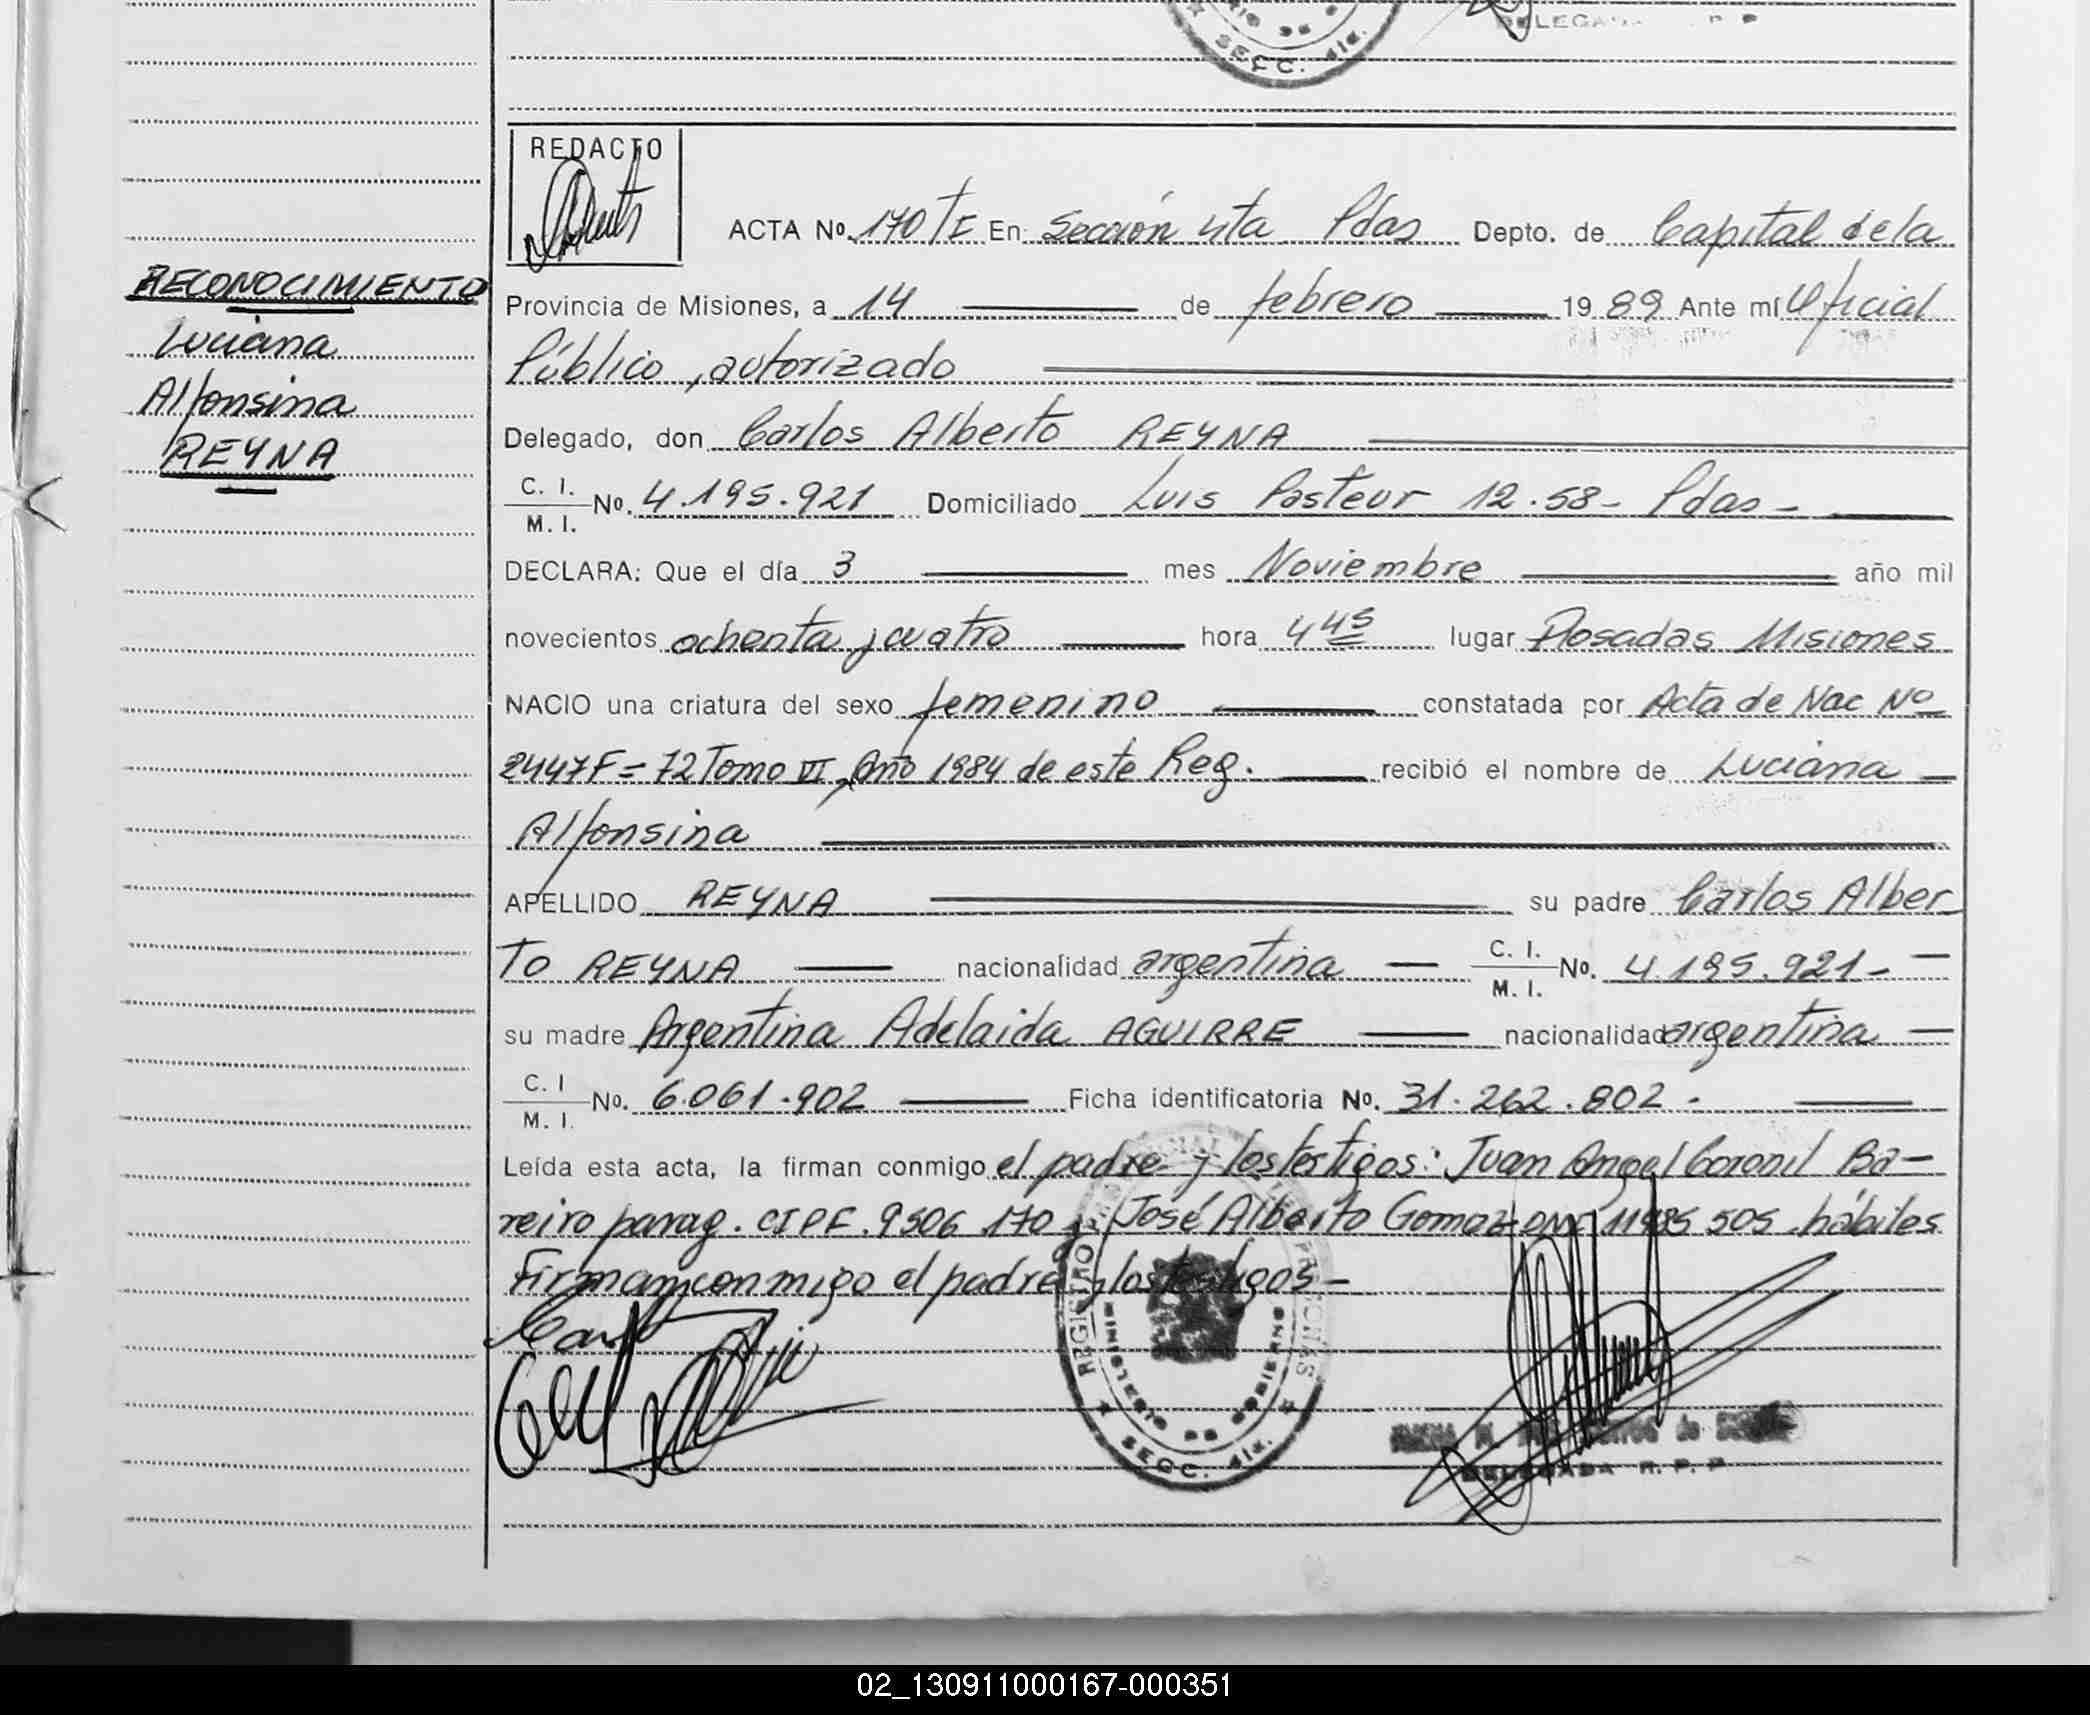 SECC. 4ta.
DELEGADA R. P. P
REDACTO
ACTA No. 170 TI En Sección 4ta Pdas Depto. de Capital de la
RECONOCIMIENTO
Luciana
Alfonsina
REYNA
Provincia de Misiones, a 14 de febrero 1989 Ante mí Oficial
Público, autorizado
Delegado, don Carlos Alberto REYNA
C. I.
M. I. No. 4.195.921 Domiciliado Luis Pasteur 12.58- Pdas-
DECLARA: Que el día 3 mes Noviembre año mil
novecientos ochenta y cuatro hora 4 45 lugar Posadas Misiones
NACIO una criatura del sexo femenino constatada por Acta de Nac No
2447 F= 72 Tomo VI, Año 1984 de este Reg. recibió el nombre de Luciana
Alfonsina
APELLIDO REYNA su padre Carlos Alber
To REYNA nacionalidad argentina C. I. M. I. No. 4.195.921-
su madre Argentina Adelaida AGUIRRE nacionalidad argentina
C. I
M. I. No. 6.061.902 Ficha identificatoria No. 31.262.802.
Leída esta acta, la firman conmigo el padre y los testigos: Juan Angel Coronil Ba-
reiro parag. CIPF. 9506 170 y José Alberto Gomez DNI 11985 505 hábiles
Firman conmigo el padre y los testigos-
REGISTRO PERSONAS
MINISTERIO DE GOBIERNO
SECC. 4ta.
DELEGADA R. P. P
02_130911000167-000351